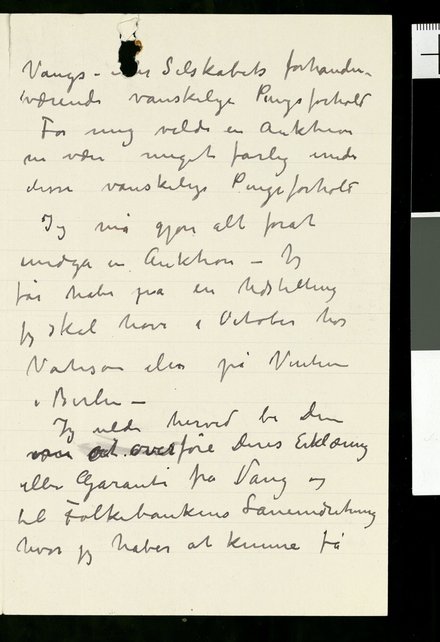 Vangs – eller Selskabets forhanden-
værende vanskelige Pengeforhold
For mig vilde en Auktion
nu være meget farlig under
disse vanskelige Pengeforhold
Jeg må gjøre alt forat
undgå en Auktion – Jeg
får håbe på en Udstilling
jeg skal have i October hos
eller på Vinteren
i Berlin –
Jeg vilde herved be Dem
at overføre Deres Erklæring
eller Garanti fra Vang og
til Folkebankens Låneindretning
hvor jeg håber at kunne få